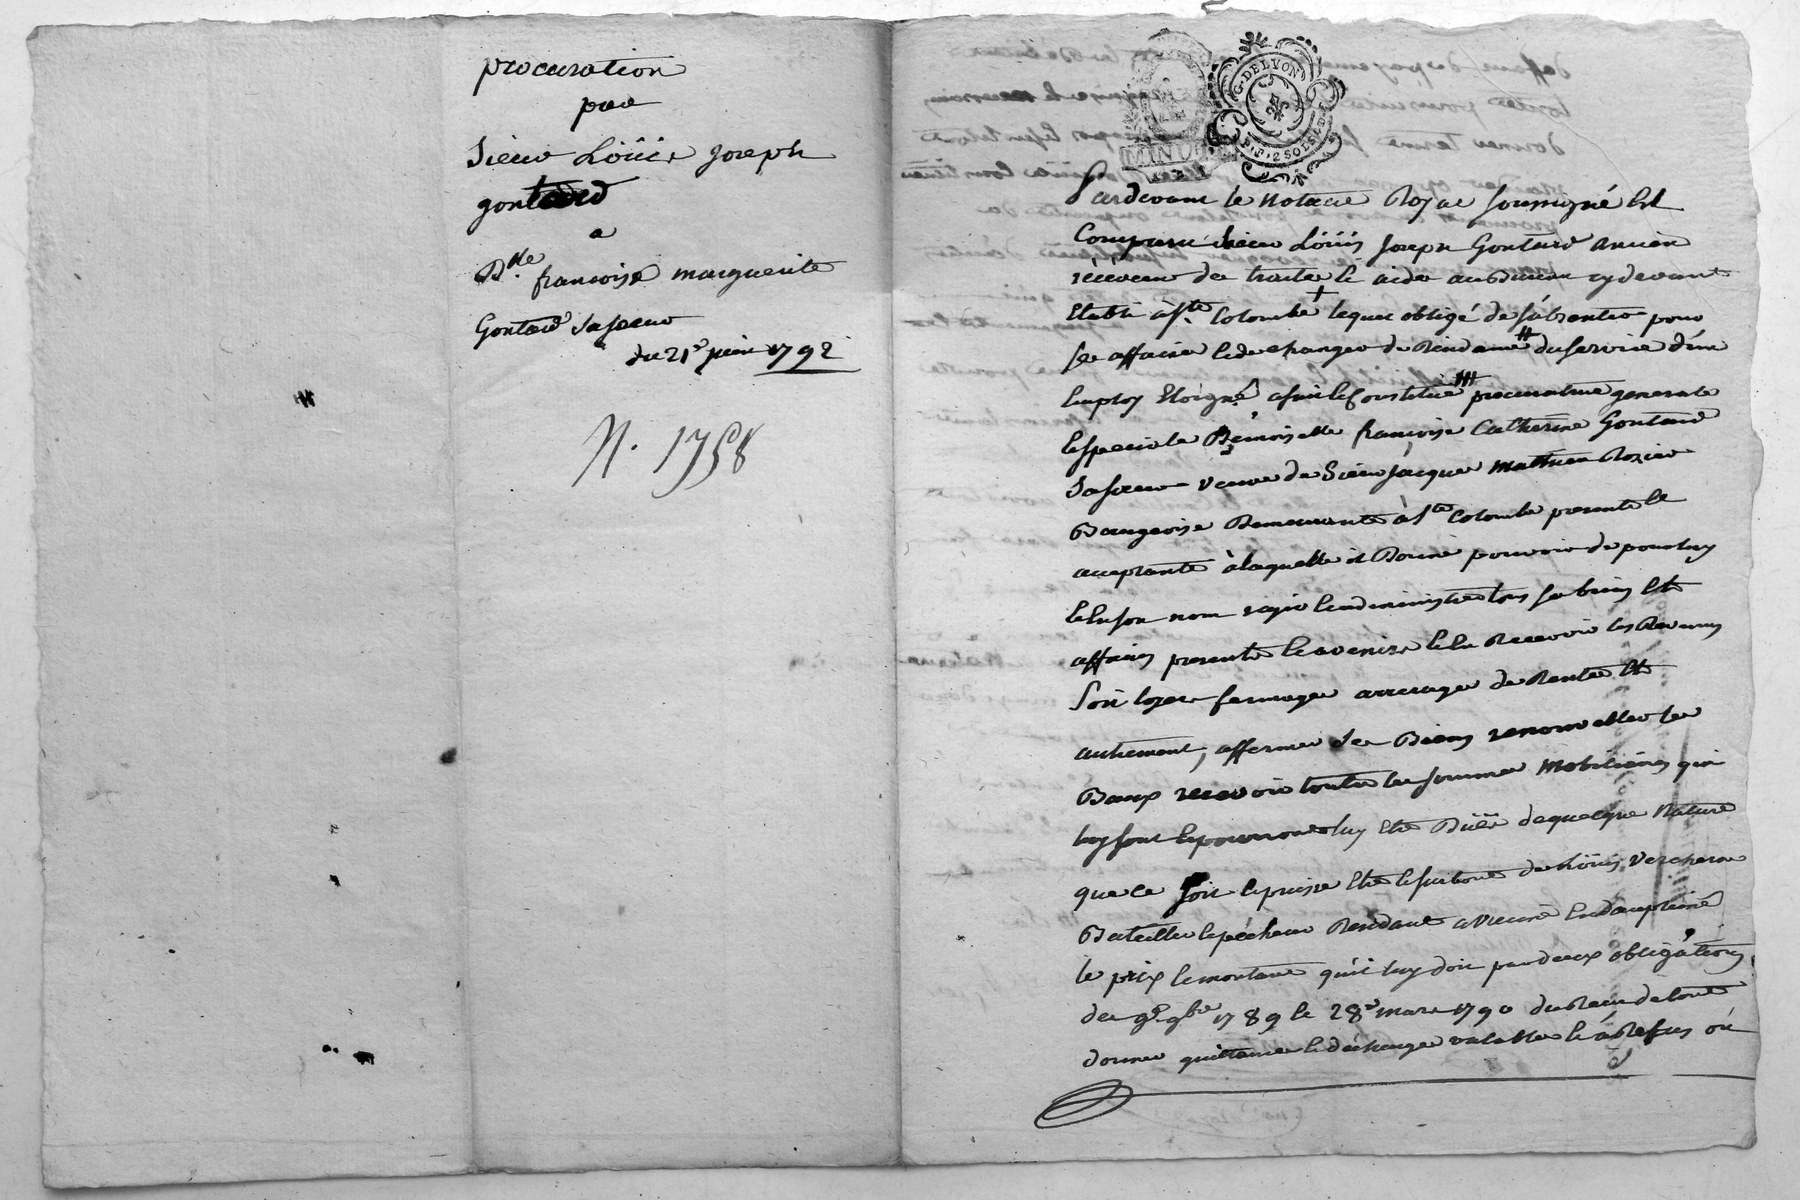 procuration
par
Sieur Loüis Joseph
gontard
a
Dlle françoise marguerite
Gontard Sa Soeur
du 21e juin 1792
N. 1758
G. DE LYON
P.P. 2 SOLS
MINU
Pardevant le Notaire Royal soussigné Est
Comparu Sieur Loüis Joseph Gontard ancien
receveur de traitte et aides cydevant
Etabli à Ste Colombe + lequel obligé de s'absenter pour
Ses affaires et de changer de Residance # du service d'un
employ Eloigné a fait et Constitué ### procuratrice generale
Et speciale Demoiselle françoise Catherine Gontard
Sa soeur veuve de Sieur Jacque Matthieu Rozier
Bourgeoise Demeurante à Ste Colombe presente et
acceptante à laquelle il Donne pouvoir de pour luy
et En son nom regir et administrer tous ses biens Et
affaires presente et avenire et En Recevoir les Revenus
Soit loyers fermages arrerages de Rentes Et
autrement, affermer ses Biens renouveller les
Baux recevoir toutes les sommes mobiliaires qui
luy sont et pourront luy Etre Düës de quelque Nature
que ce soit de Loüis Verchere
Battellier et pecheur Residant a Vienne En dauphiné
le prix et montant qu'il luy doit par deux obligations
des 9e 9bre 1789 et 28e mars 1790 du Recu de tout
donner quittance et decharge valable et à Refus où